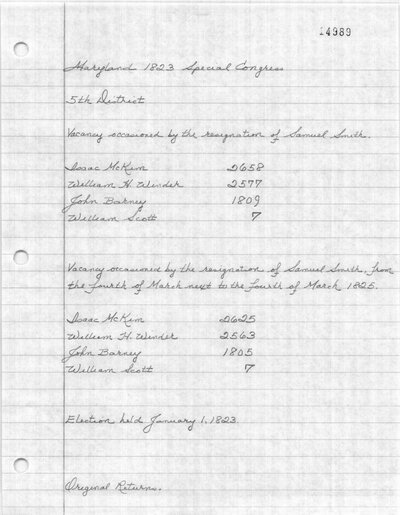 14989
Maryland 1823 Special Congress
5th District
Vacancy occasioned by the resignation of Samuel Smith.
Isaac McKim 2658
William H. Winder 2577
John Barney 1809
William Scott 7
Vacancy occasioned by the resignation of Samuel Smith, from
the fourth of March next to the fourth of March 1825.
Isaac McKim 2625
William H. Winder 2563
John Barney 1805
William Scott 7
Election held January 1, 1823.
Original Returns.